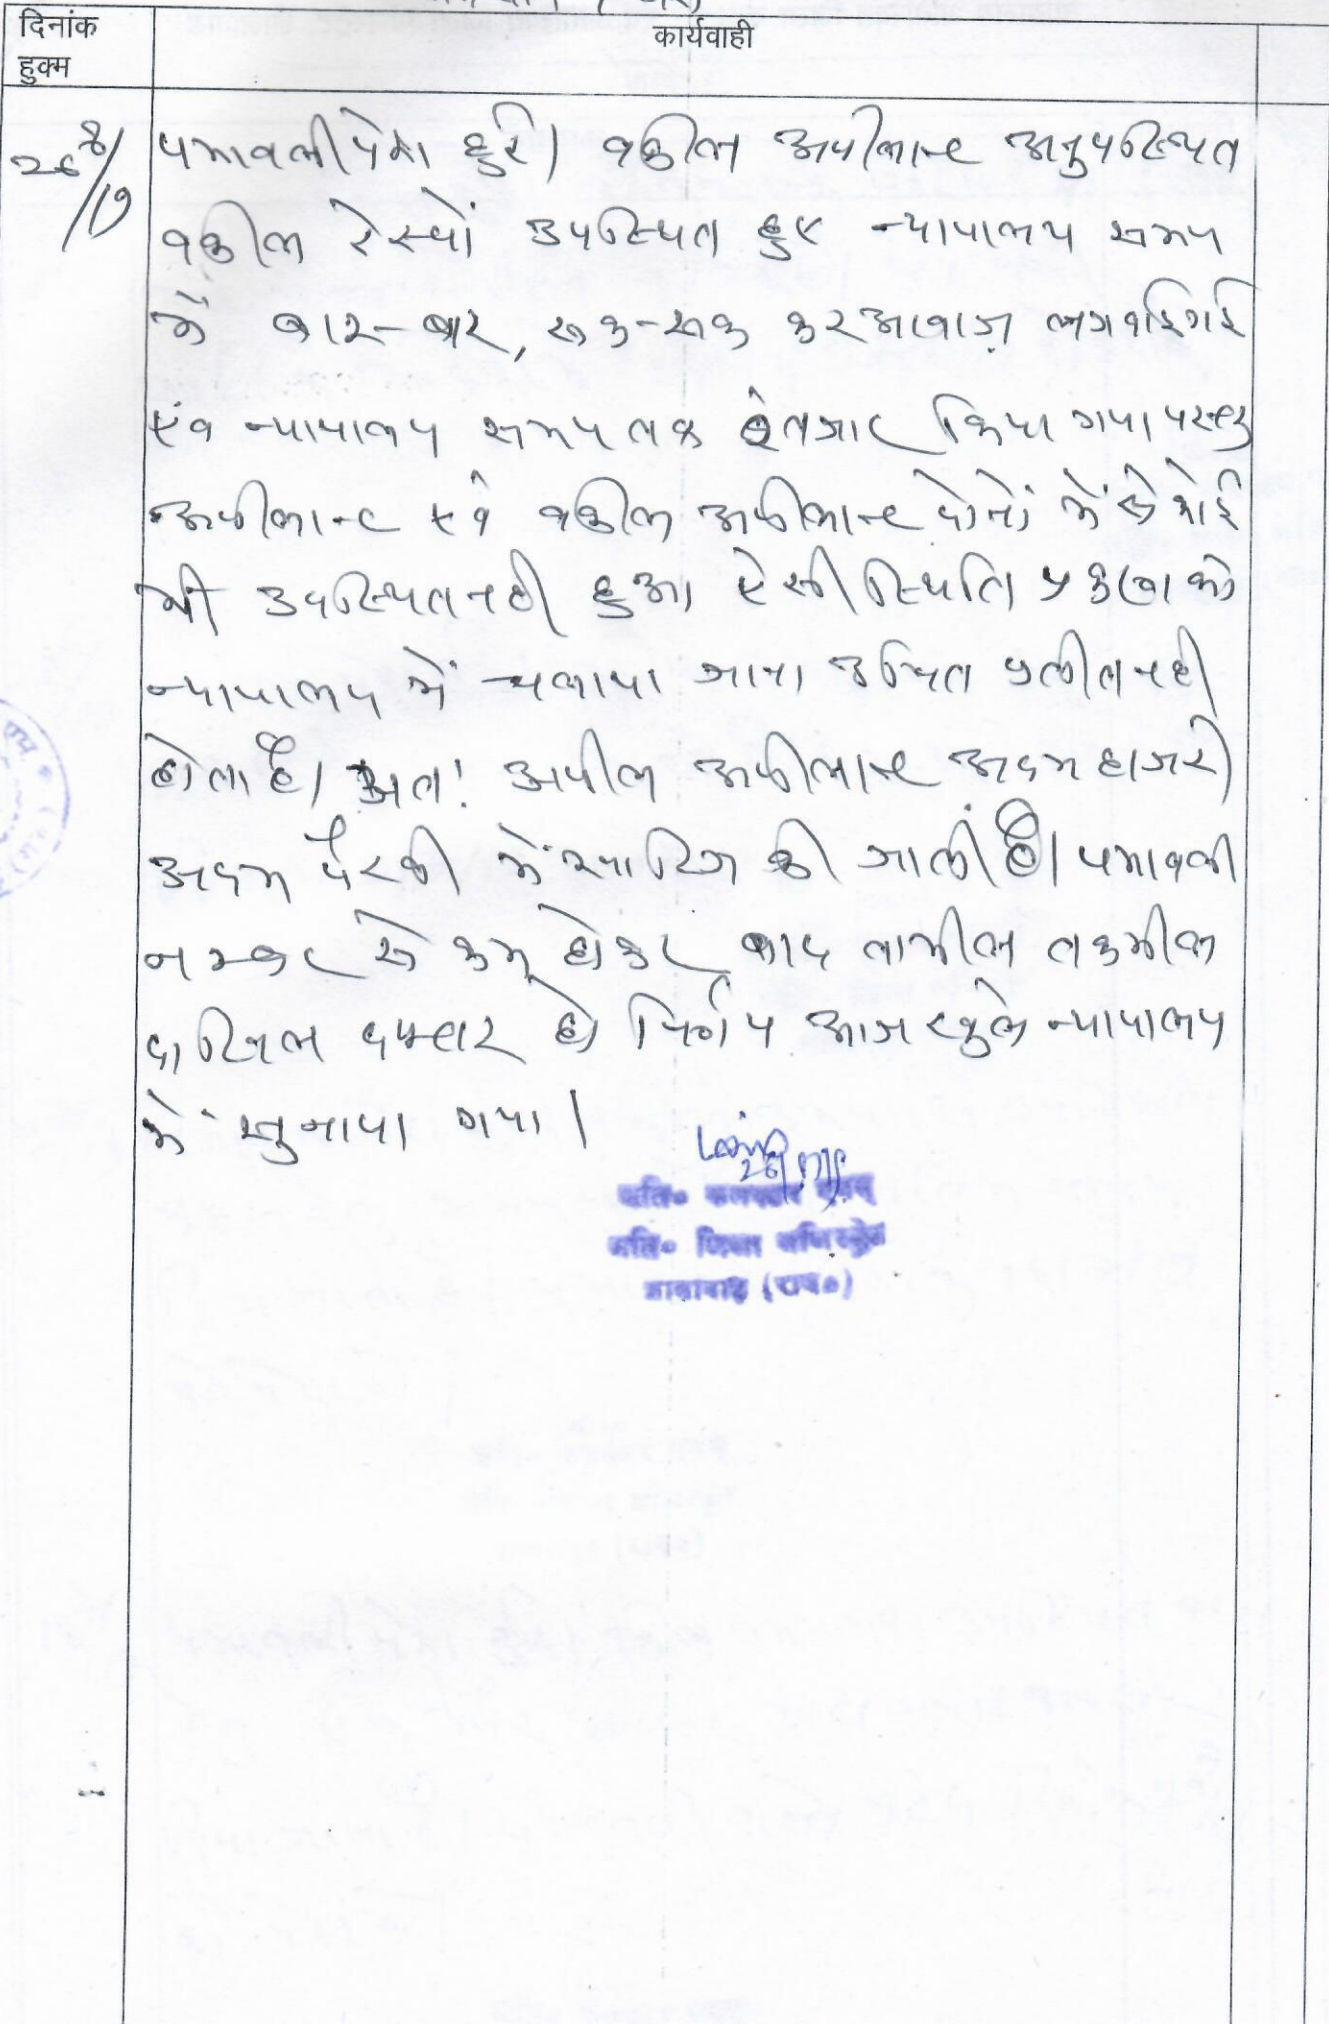 दिनांक
हुक्म
कार्यवाही
26/8/19
पत्रावली पेश हुई। वकील अपीलान्ट अनुपस्थित
वकील रेस्पों उपस्थित हुए न्यायालय समय
में बार-बार, रूक-रूक कर आवाज़ लगवाई गई
एंव न्यायालय समय तक इंतजार किया गया परन्तु
अपीलान्ट एवं वकील अपीलान्ट दोनों में से कोई
भी उपस्थित नही हुआ ऐसी स्थिति प्रकरण को
न्यायालय में चलाया जाना उचित प्रतीत नही
होता है। अत! अपील अपीलान्ट अदम हाजरी
अदम पैरवी में खारिज की जाती है। पत्रावली
नम्बर से कम होकर बाद तामील तकमील
दाखिल दफ्तर हो निर्णय आज खुले न्यायालय
में सुनाया गया।
अति० कलक्टर एवम्
अति० जिला मजिस्ट्रेट
झालावाड़ (राज०)